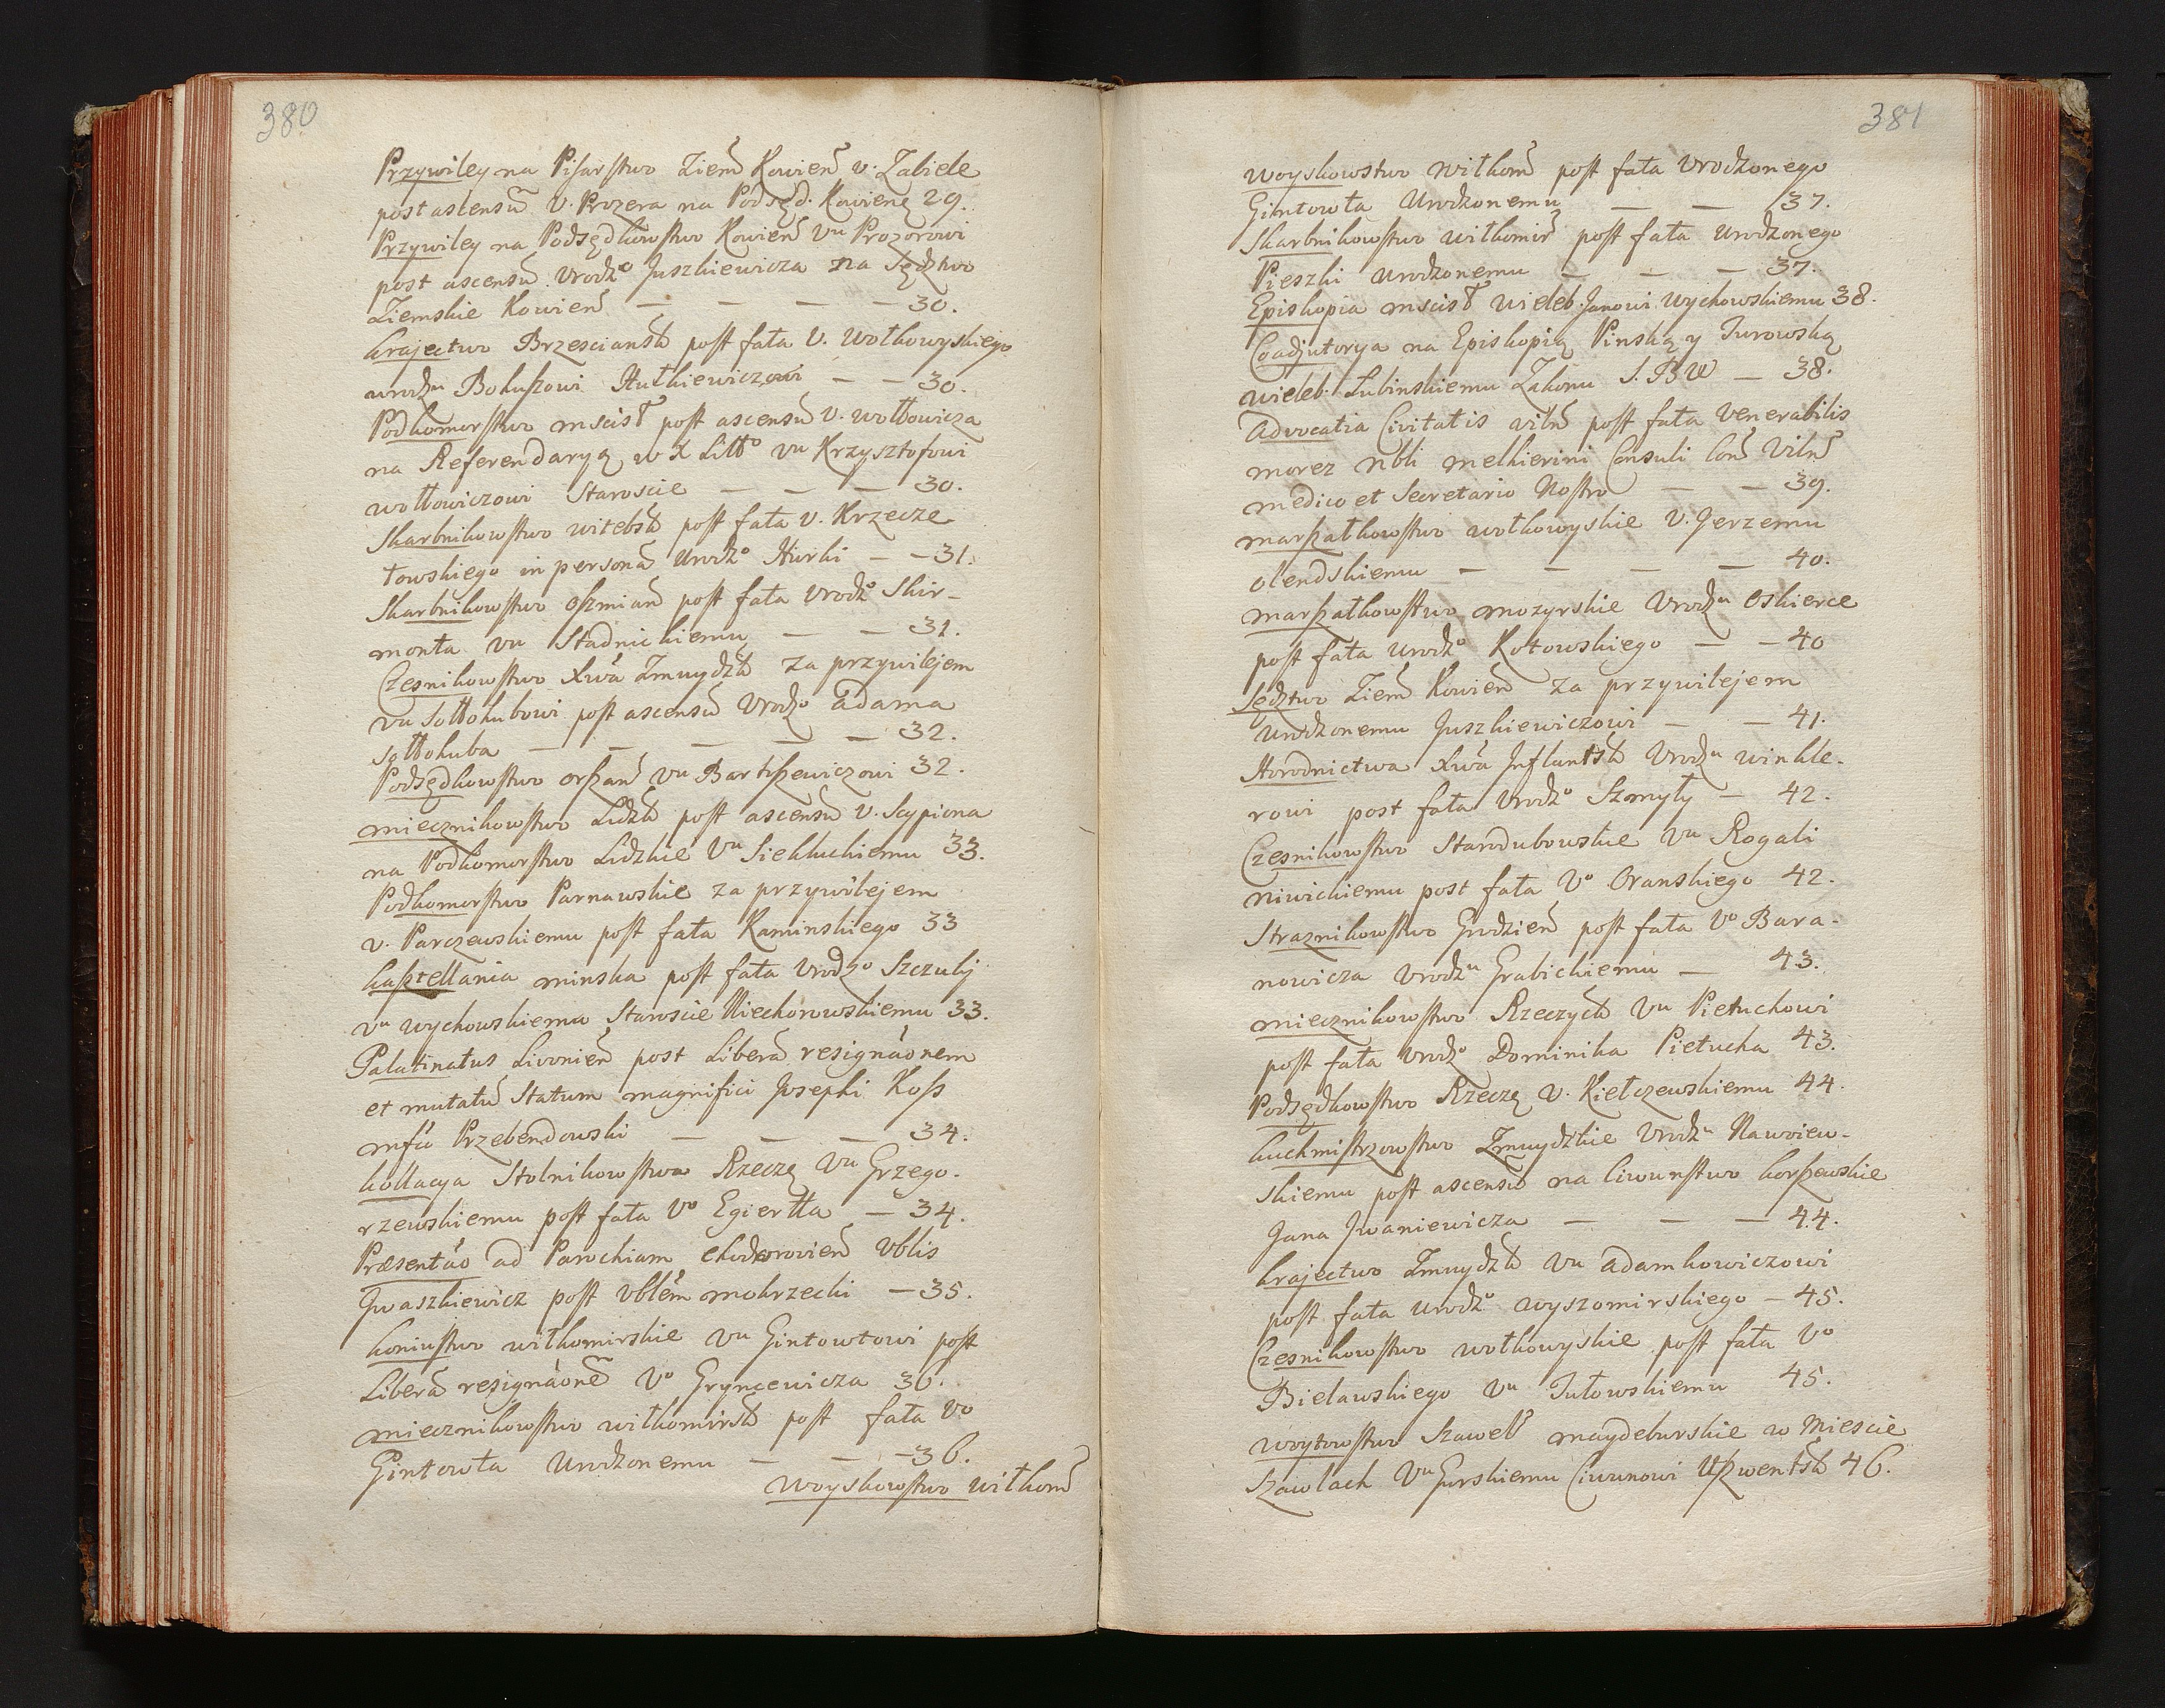 380
Przywiley na Pisarstwo Ziem̃ Kowień v. Zabiele
post ascensũ V. Prozera na Podsęd. Kowienę 29.
Przywiley na Podsędkowstwo Kowień Vu Prozorowi
post ascensũ Vrodzo Juszkiewicza na Sędztwo
Ziemskie Kowień — — — — 30.
krajectwo Brzesciansk post fata V. Wołkowyskiego
urodzu Bohuszowi Hutkiewiczowi — — 30.
Podkomorstwo mscisł post ascensũ V. wołłowicza
na Referendaryą w X Litto vu Krzysztofowi
wołłowiczowi Staroscie — — — 30.
Skarbnikowstwo witebsk post fata v. Krzecze-
towskiego in personã Urodzo Hurki — — 31.
Skarbnikowstwo oszmiań post fata vrodzo Skir-
monta vu Stadnickiemu — — 31.
Czesnikowstwo Xwa Zmuydzk za przywilejem
vu Sołłohubowi post ascensũ Vrodzo adama
sołłohuba — — — — — 32.
Podsędkowstwo orszań vu Bartszewiczowi 32.
miecznikowstwo Lidzk post ascensũ v. Scypiona
na Podkomorstwo Lidzkie Vu Siekluckiemu 33.
Podkomorstwo Parnawskie za przywilejem
v. Parczewskiemu post fata Kaminskiego 33
kasztellania minska post fata Vrodzo Szczuky
vu wychowskiemu Staroscie Niechorowskiemu 33.
Palatinatus Livonień post Liberã resignaõnem
et mutatũ Statum magnifici Josephi Koss
mfco Przebendowski — — — 34.
kollacya Stolnikowstwa Rzeczę Vu Grzego-
rzewskiemu post fata Vo Egierłła — 34.
Præsentao ad Parochiam chodorowień Vblis
Jwaszkiewicz post vblem mokrzecki — 35.
koniustwo wiłkomirskie Vu Gintowtowi post
Liberã resignaõnẽ Vo Gryncewicza 36.
miecznikowstwo wiłkomirsk post fata Vo
Gintowta Urodzonemu — — — 36.
woyskowstwo wiłkom̃
381
woyskowstwo Wiłkom̃ post fata Vrodzonego
Gintowta Urodzonemu — — 37.
Skarbnikowstwo wiłkomir̃ post fata urodzonego
Pieszki urodzonemu — — — 37.
Episkopia mscisł wieleb. Janowi Wychowskiemu 38.
Coadjutorya na Episkopią Pinską y Turowską
wieleb. Lubinskiemu Zakonu S. BW — 38.
advocatia Civitatis vilñ post fata Venerabilis
morez Nbli melkierini Consuli Con Vilñ
medico et Secretario Nostro — — 39.
marszałkowstwo wołkowyskie V. Jerzemu
olendskiemu — — — — 40.
marszałkowstwo mozyrskie Vrodzu Oskierce
post fata urodzo Kotowskiego — — 40
Sędztwo Ziem̃ Kowień za przywilejem
Urodzonemu Juszkiewiczowi — — 41.
Horodnictwa Xwa Jnflantsk Vrodzu winkle-
rowi post fata Vrodzo Szmyły — 42.
Czesnikowstwo Starodubowskie Vu Rogali
niwickiemu post fata Vo Oranskiego 42.
Straznikowstwo Grodzień post fata Vo Bara-
nowicza Vrodzu Grabickiemu — 43.
miecznikowstwo Rzeczyck Vu Pietuchowi
post fata vrodzo Dominika Pietucha 43.
Podsędkowstwo Rzeczę V. Kiełczewskiemu 44.
kuchmistrzowstwo Zmuydzkie Vrodzu Nawoiew-
skiemu post ascensũ na Ciwunstwo korszewskie
Jana Jwaniewicza — — — 44.
krajectwo Zmuydzk Vu adamkowiczowi
post fata urodzo wyszomirskiego — 45.
Czesnikowstwo wołkowyskie post fata Vo
Bielawskiego Vu Tutowskiemu 45.
woytowstwo Szawel maydeburskie w Miescie
Szawlach Vu Gorskiemu Ciwunowi Uszwentsk 46.